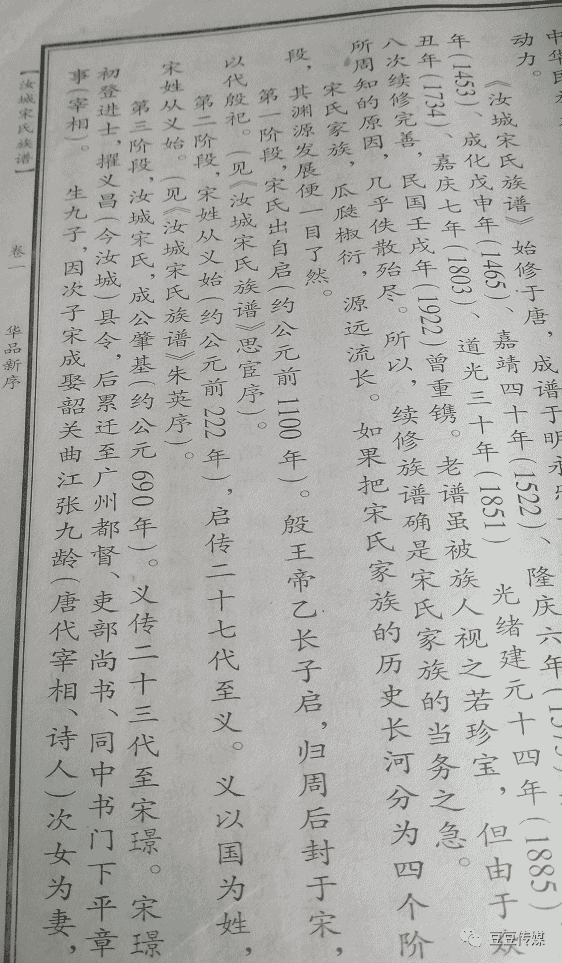 中华民
动力。
《汝城宋氏族谱》始修于唐，成谱于明永
年(1453)、成化戊申年(1465)、嘉靖四十年(1522)、隆庆六年
丑年(1734)、嘉庆七年(1803、道光三十年(1851) 光绪建元十四年(1885)
八次续修完善，民国壬戌年(1922)曾重镌。老谱虽被族人视之若珍宝，但由于众
所周知的原因，几乎佚散殆尽。所以，续修族谱确是宋氏家族的当务之急。
宋氏家族，瓜瓞椒衍，源远流长。如果把宋氏家族的历史长河分为四个阶
段，其渊源发展便一目了然。
第一阶段，宋氏出自启(约公元前1100年)。殷王帝乙长子启，归周后封于宋，
以代殷祀。(见《汝城宋氏族谱》思宦序)。
第二阶段，宋姓从义始(约公元前222年)，启传二十七代至义。义以国为姓，
宋姓从义始。(见《汝城宋氏族谱》朱英序)。
第三阶段，汝城宋氏，成公肇基(约公元690年)。义传二十三代至宋璟。宋璟
初登进士，擢义昌(今汝城)县令，后累迁至广州都督、吏部尚书、同中书门下平章
事(宰相)。 生九子，因次子宋成娶韶关曲江张九龄(唐代宰相、诗人)次女为妻，
【汝城宋氏族谱】
卷一
华品新序
豆豆传媒